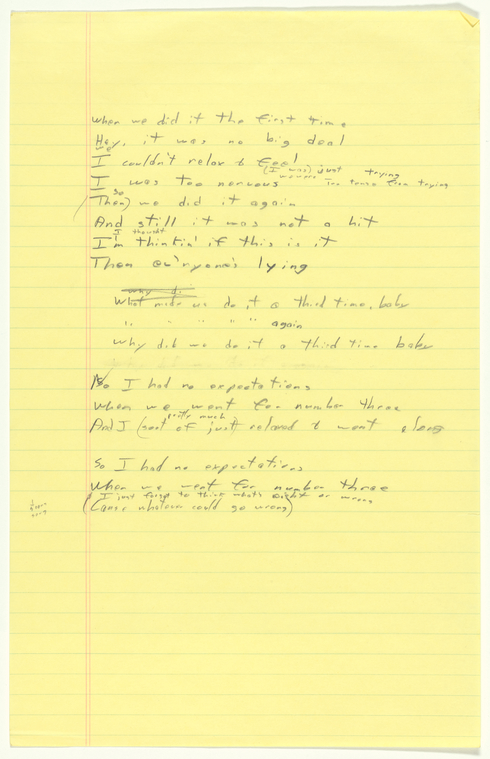 When we did it the first time
Hey, it was no big deal
I couldn't relax & feel
(I was) just trying
I was too nervous
so
(Then) we did it again
And still it was not a hit
I thought
I'm thinkin' if this is it
Then ev'ryone's lying
why di
What made us do it a third time, baby
" " " " " again
Why did we do it a third time baby
So I had no expectations
When we went for number three
pretty much
And I (sort of just) relaxed & went along
So I had no expectations
When we went for number three
I just forgot to think what's right or wrong
(Cause whatever could go wrong)